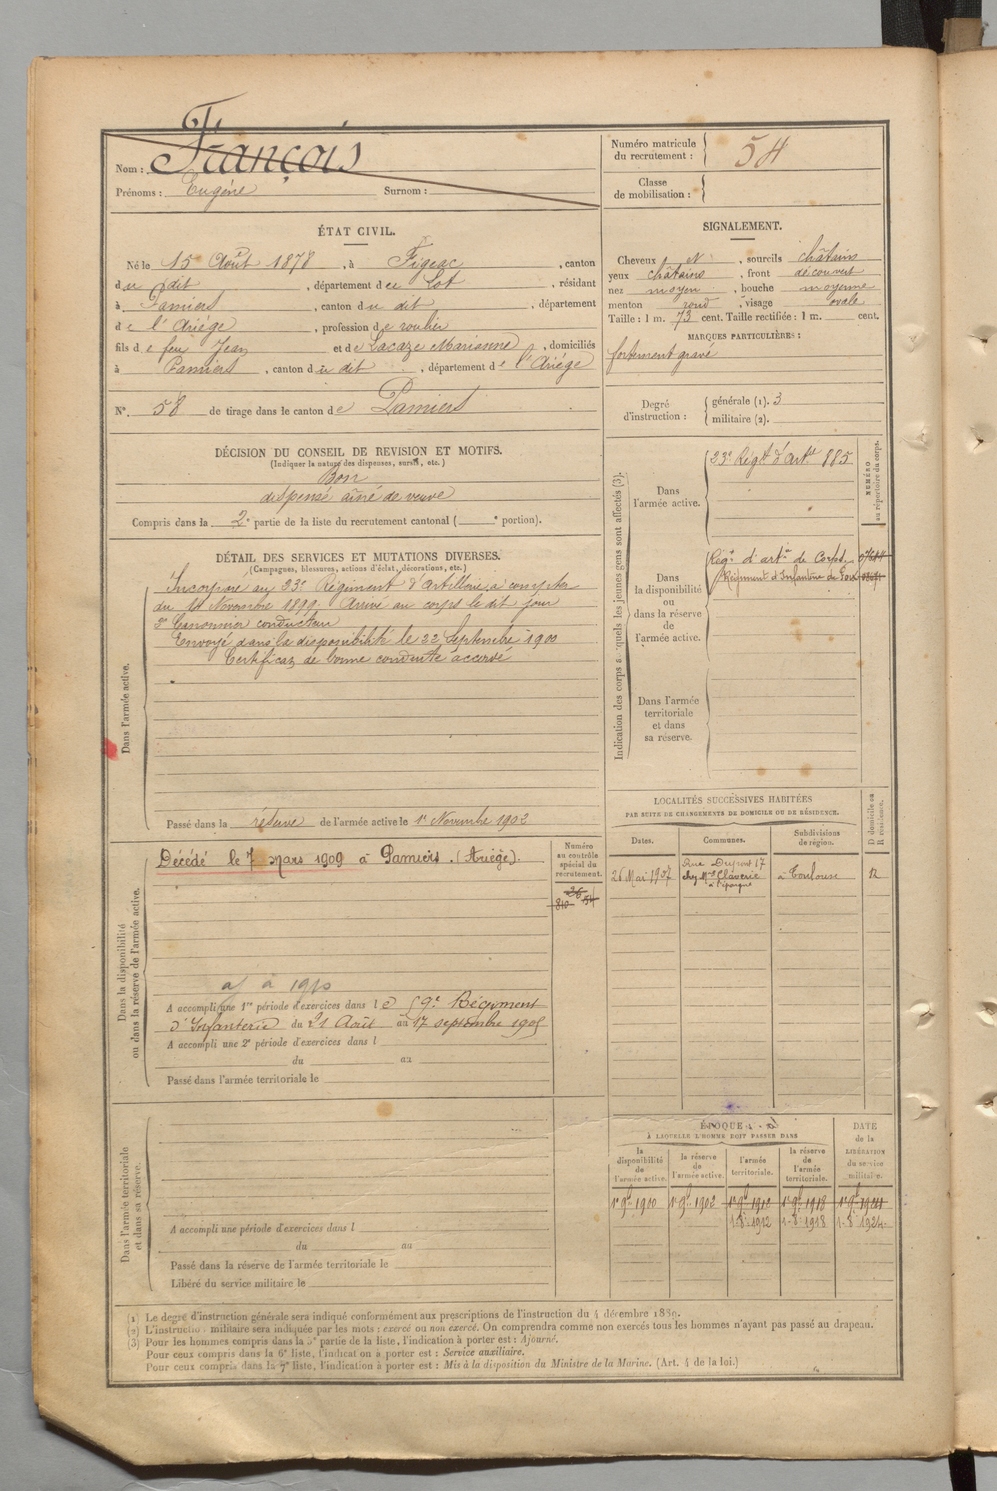 Nom : François
Prénoms : Eugène Surnom :
Numéro matricule
du recrutement : 54
Classe
de mobilisation :
ÉTAT CIVIL.
Né le 15 Août 1878, à Figeac, canton
du dit, département du Lot, résidant
à Pamiers, canton du dit, département
de l'Ariège, profession de roulier
fils de feu Jean et de Lacaze Marianne, domiciliés
à Pamiers, canton du dit, département de l'Ariège
N°. 58 de tirage dans le canton de Pamiers
SIGNALEMENT.
Cheveux N, sourcils châtains
yeux châtains, front découvert
nez moyen, bouche moyenne
menton rond, visage ovale
Taille : 1 m. 73 cent. Taille rectifiée : 1 m. cent.
MARQUES PARTICULIÈRES :
fortement gravé
Degré
d'instruction :
générale (1). 3
militaire (2).
DÉCISION DU CONSEIL DE REVISION ET MOTIFS.
(Indiquer la nature des dispenses, sursis, etc.)
Bon
dispensé aîné de veuve
Compris dans la 2e partie de la liste du recrutement cantonal ( e portion).
DÉTAIL DES SERVICES ET MUTATIONS DIVERSES.
(Campagnes, blessures, actions d'éclat, décorations, etc.)
Dans l'armée active.
Incorporé au 23e Régiment d'Artillerie à compter
du 14 Novembre 1899. Arrivé au corps le dit jour
2e Canonnier conducteur
Envoyé dans la disponibilité le 22 Septembre 1900
Certificat de bonne conduite accordé
Passé dans la réserve de l'armée active le 1er Novembre 1902
Indication des corps auxquels les jeunes gens sont affectés (3).
NUMÉRO
au répertoire du corps.
Dans
l'armée active.
23e Régt d'Arte 885
Dans
la disponibilité
ou
dans la réserve
de
l'armée active.
Régt d'arte de Corps
Régiment d'Infanterie de Foix
Dans l'armée
territoriale
et dans
sa réserve.
LOCALITÉS SUCCESSIVES HABITÉES
PAR SUITE DE CHANGEMENTS DE DOMICILE OU DE RÉSIDENCE.
Dates. Communes. Subdivisions
de région.
D domicile ou
R résidence.
26 Mai 1907 Rue Dupont 17
chez Mme Claverie à Toulouse R
Dans la disponibilité
ou dans la réserve de l'armée active.
Décédé le 7 Mars 1909 à Pamiers. (Ariège).
Numéro
au contrôle
spécial du
recrutement.
36
810 54
à 1910
A accompli une 1re période d'exercices dans le 59e Régiment
d'Infanterie du 21 Août au 17 septembre 1905
A accompli une 2e période d'exercices dans l
du au
Passé dans l'armée territoriale le
Dans l'armée territoriale
et dans sa réserve.
A accompli une période d'exercices dans l
du au
Passé dans la réserve de l'armée territoriale le
Libéré du service militaire le
ÉPOQUE
À LAQUELLE L'HOMME DOIT PASSER DANS
la
disponibilité
de
l'armée active.
la réserve
de
l'armée active.
l'armée
territoriale.
la réserve
de
l'armée
territoriale.
DATE
de la
LIBÉRATION
du service
militaire.
1er 9bre 1900 1er 9bre 1902 1er 9bre 1912 1er 9bre 1918 1er 9bre 1924
1-8-1912 1-8-1918 1-8-1924
(1) Le degré d'instruction générale sera indiqué conformément aux prescriptions de l'instruction du 4 décembre 1889.
(2) L'instruction militaire sera indiquée par les mots : exercé ou non exercé. On comprendra comme non exercés tous les hommes n'ayant pas passé au drapeau.
(3) Pour les hommes compris dans la 5e partie de la liste, l'indication à porter est : Ajourné.
Pour ceux compris dans la 6e liste, l'indication à porter est : Service auxiliaire.
Pour ceux compris dans la 7e liste, l'indication à porter est : Mis à la disposition du Ministre de la Marine. (Art. 4 de la loi.)